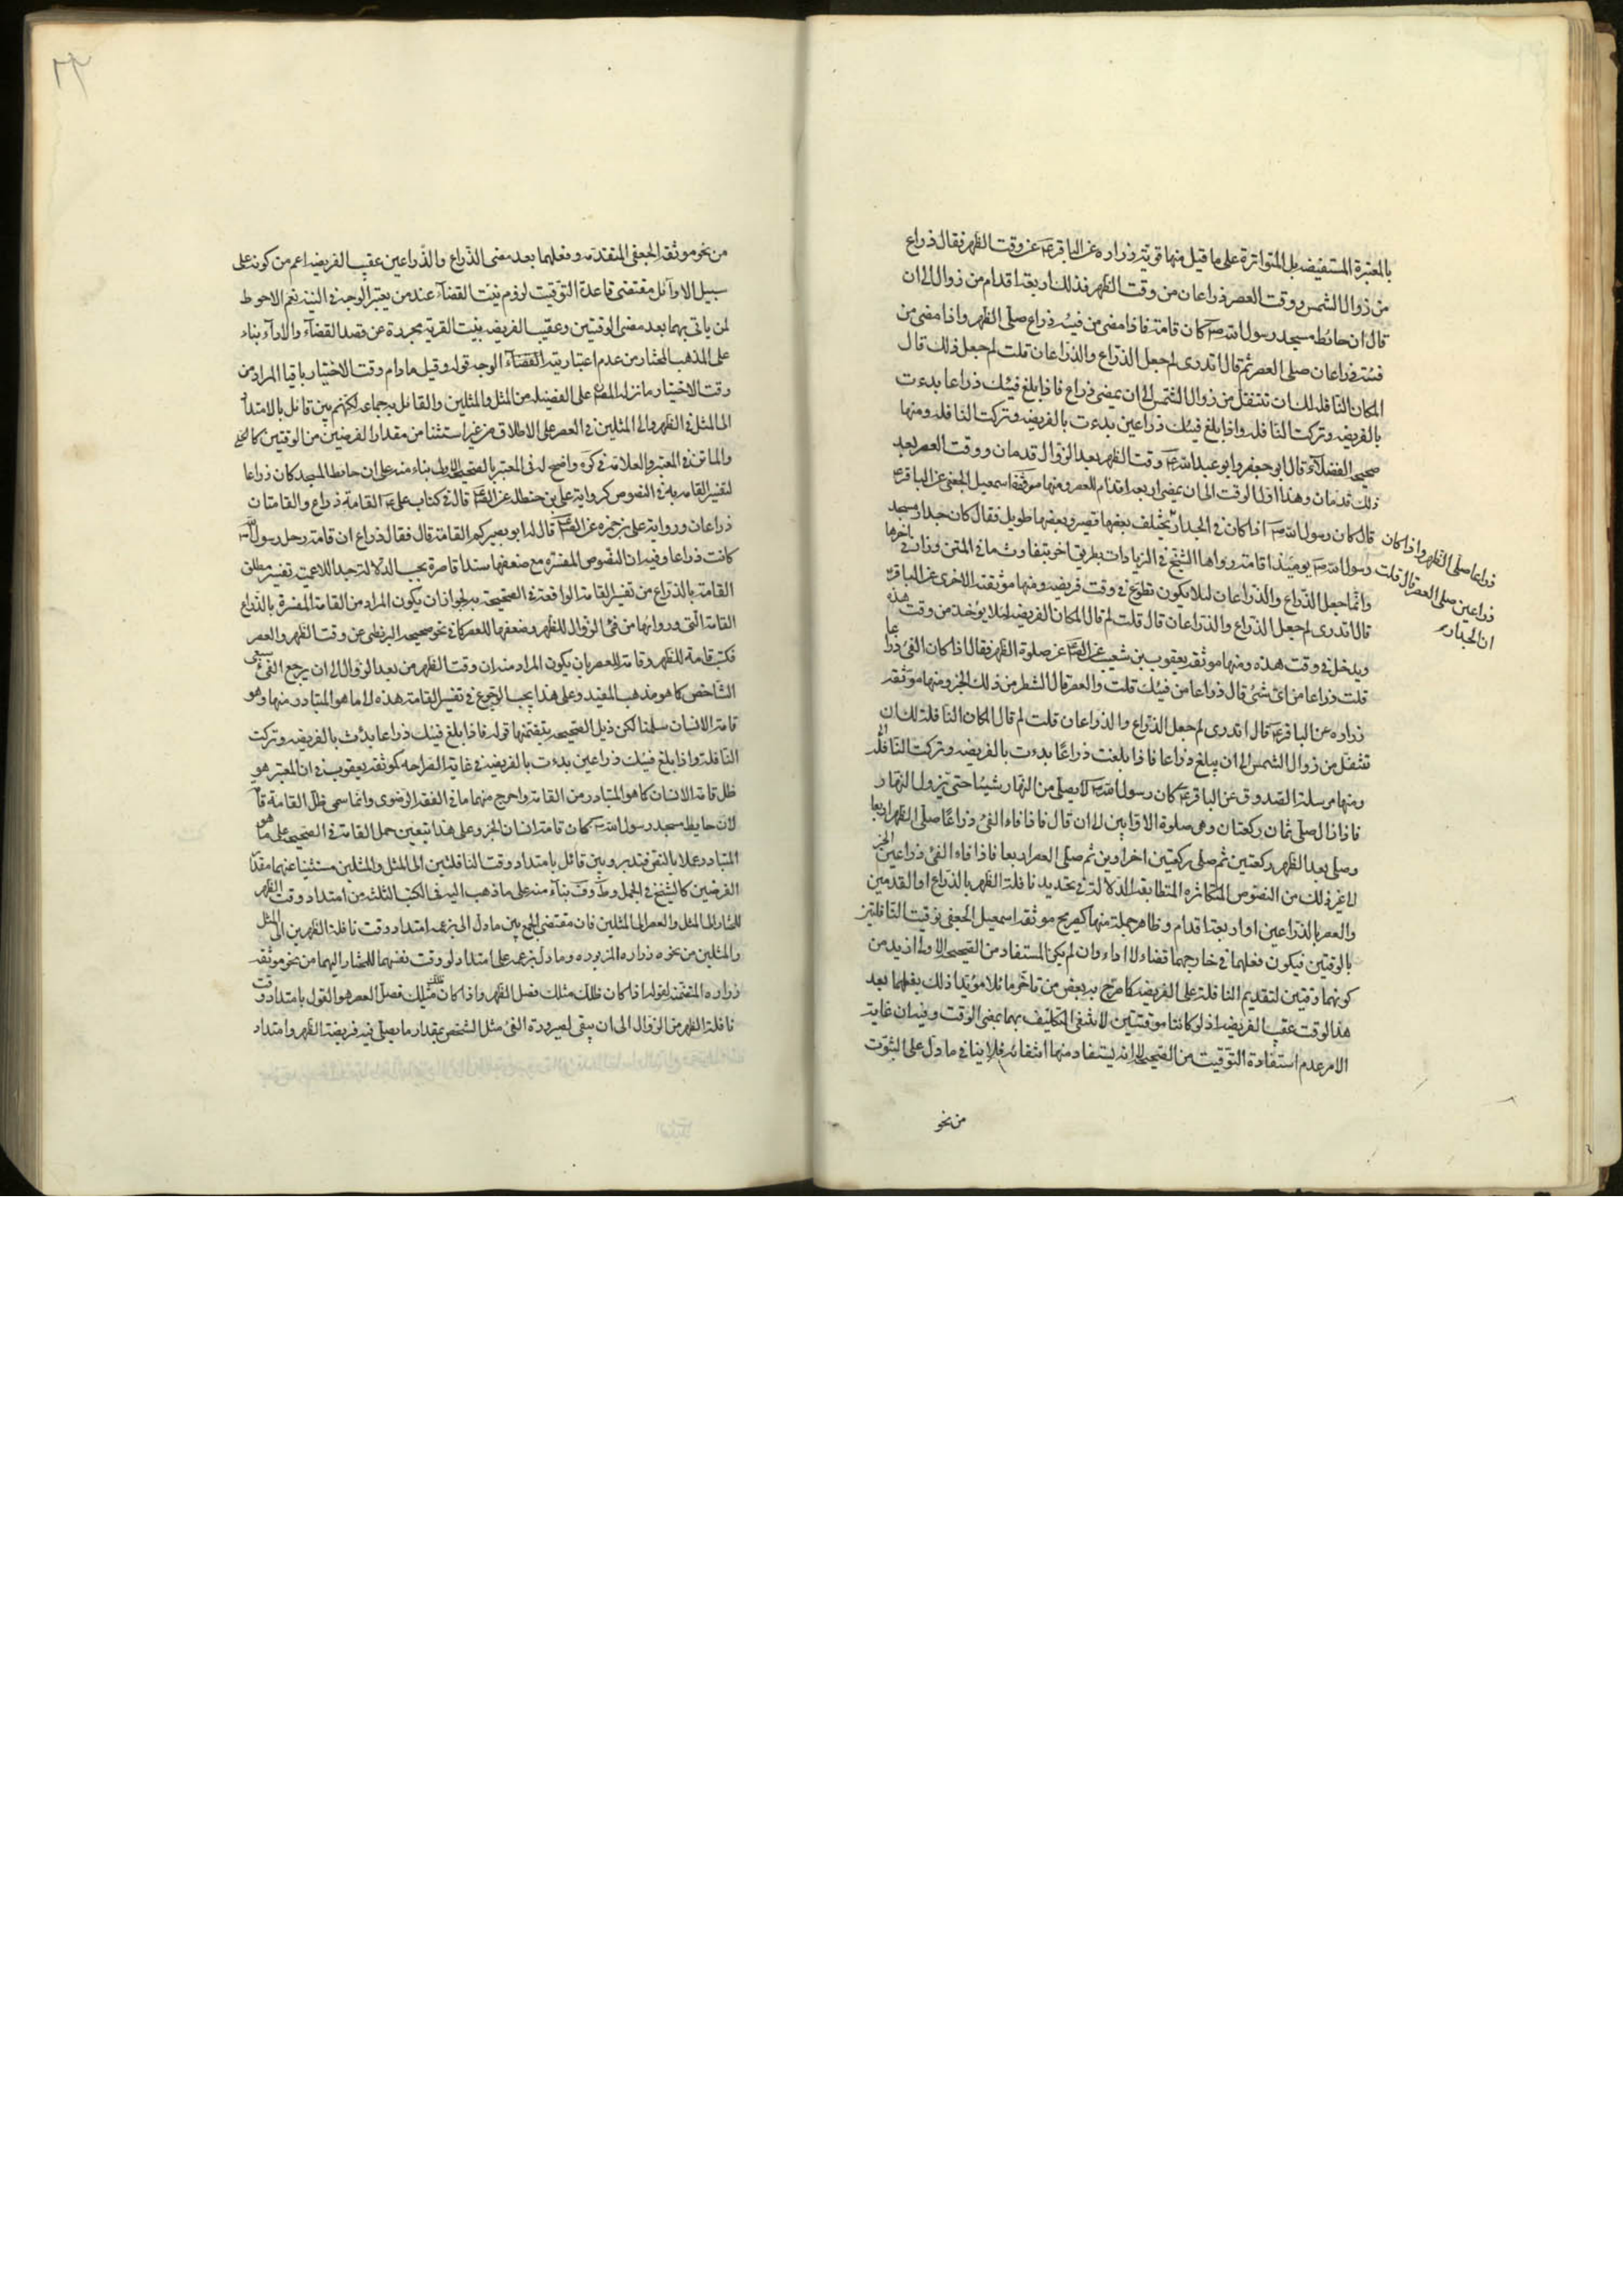 بالمعتبرة المستفيضه بل المتواترة على ما قيل منها قوية زراره عن الباقر ع عن وقت الظهر فقال ذراع
من زوال الشمس ووقت العصر ذراعان من وقت الظهر فذلك اربعة اقدام من زوال الى ان
قال ان حائط مسجد رسول الله ص كان قامة فاذا مضى من فيئه ذراع صلى الظهر واذا مضى من
فيئه ذراعان صلى العصر ثم قال اتدرى لم جعل الذراع والذراعان قلت لم جعل ذلك قال
لمكان النافله لك ان تتنفل من زوال الشمس الى ان يمضى ذراع فاذا بلغ فيئك ذراعا بدءت
بالفريضه وتركت النافله واذا بلغ فيئك ذراعين بدءت بالفريضه وتركت النافله ومنها
صحيح الفضلاء قال ابو جعفر وابو عبدالله ع وقت الظهر بعد الزوال قدمان ووقت العصر بعد
ذلك قدمان وهذا اول الوقت الى ان يمضى اربعة اقدام للعصر ومنها موثقة اسمعيل الجعفى عن الباقر ع
قال كان رسول الله ص اذا كان فئ الجدار
ذراعا صلى الظهر واذا كان
ذراعين صلى العصر قال قلت
ان الجدار
يختلف بعضها قصير وبعضها طويل فقال كان جدار مسجد
رسول الله ص يومئذ قامة ورواها الشيخ فى الزيادات بطريق اخر بتفاوت ما فى المتن وزاد فى اخرها
وانما جعل الذراع والذراعان لئلا يكون تطوع فى وقت فريضه ومنها موثقته الاخرى عن الباقر ع
قال اتدرى لم جعل الذراع والذراعان قال قلت لم قال لمكان الفريضه لئلا يؤخذ من وقت هذه
ويدخل فى وقت هذه ومنها موثقه يعقوب بن شعيب عن الصادق عن صلوة الظهر فقال اذا كان الفئ ذراعا
قلت ذراعا من اى شئ قال ذراعا من فيئك قلت والعصر قال الشطر من ذلك الخبر ومنها موثقه
زراره عن الباقر ع قال اتدرى لم جعل الذراع والذراعان قلت لم قال لمكان النافلة لك ان
تتنفل من زوال الشمس الى ان يبلغ ذراعا فاذا بلغت ذراعًا بدءت بالفريضه وتركت النافله
ومنها مرسلة الصدوق عن الباقر ع كان رسول الله ص لا يصلى من النهار شيئا حتى يزول النهار
فاذا زال صلى ثمان ركعتان وهى صلوة الاوابين الى ان قال فاذا فاء الفئ ذراعًا صلى الظهر اربعا
وصلى بعد الظهر ركعتين ثم صلى ركعتين اخراوين ثم صلى العصر اربعا فاذا فاء الفئ ذراعين الخبر
الى غير ذلك من النصوص المتكاثره المتطابقة الدلالة فى تحديد نافلة الظهر بالذراع او القدمين
والعصر بالذراعين او اربعة اقدام وظاهر جملة منها كصريح موثقه اسمعيل الجعفى توقيت النافلتين
بالوقتين فيكون فعلهما فى خارجهما قضاء لا اداء وان لم يكن المستفاد من الصحيح الاول ازيد من
كونهما وقتين لتقديم النافلة على الفريضه كما صرح به بعض من تاخر قائلا مؤيدا ذلك بفعلهما بعد
هذا الوقت عقب الفريضه اذ لو كانتا موقتتين لانتفى التكليف بهما بمضى الوقت وفيه ان غاية
الامر عدم استفادة التوقيت من الصحيح لا انه يستفاد منها انتفائه فلا ينافى ما دل على الثبوت
من نحو
من نحو موثقه الجعفى المتقدمه وفعلهما بعد مضى الذراع والذراعين عقب الفريضه اعم من كونه على
سبيل الاداء بل مقتضى قاعدة التوقيت لزوم نيت القضاء عند من يعتبر الوجه فى النيه نعم الاحوط
لمن ياتى بهما بعد مضى الوقتين وعقيب الفريضه بنيت القربة مجردة عن قصد القضاء والاداء بناء
على المذهب المختار من عدم اعتبار نية القضاء الوجه قوله وقيل ما دام وقت الاختيار باقيا المراد من
وقت الاختيار ما نزله المص على الفضيله من المثل والمثلين والقائل به جماعه لكنهم بين قائل بالامتداد
الى المثل فى الظهر والى المثلين فى العصر على الاطلاق من غير استثنا من مقدار الفرضين من الوقتين كالحلى
والماتن فى المعتبر والعلامه فى كره واضح له فى المعتبر بالصحيح الاول بناء منه على ان حائط المسجد كان ذراعا
لتفسير القامه به فى النصوص كرواية على بن حنظله عن الصادق قال فى كتاب على ع القامة ذراع والقامتان
ذراعان ورواية على بن حمزه عن الصادق قال له ابو بصير كم القامة قال فقال ذراع ان قامة رحل رسول الله ص
كانت ذراعا وفيه ان النصوص المفسره مع ضعفها سندا قاصرة بحسب الدلالة جدا لا عميت تفسير مطلق
القامه بالذراع من تفسير القامه الواقعة فى الصحيحة به لجواز ان يكون المراد من القامة المفسرة بالذراع
القامة التى وروانها من فئ الزوال للظهر وضعفها للعصر كما فى نحو صحيحه البزنطى عن وقت الظهر والعصر
فكتب قامة للظهر وقامة للعصر بان يكون المراد منه ان وقت الظهر من بعد الزوال الى ان يرجع الفئ سبعى
الشاخص كما هو مذهب المفيد وعلى هذا يجب الرجوع فى تفسير القامة هذه الى ما هو المتبادر منها وهو
قامة الانسان سلمنا لكن ذيل الصحيحه بتضمنها قوله فاذا بلغ فيئك ذراعا بدئت بالفريضه وتركت
النافلة واذا بلغ فيئك ذراعين بدءت بالفريضه فى غاية الصراحه كموثقه يعقوب فى ان المعتبر هو
ظل قامة الانسان كما هو المتبادر من القامة واصرح منهما ما فى الفقه الرضوى وانما سمى ظل القامة قامة
لان حايط مسجد رسول الله ص كان قامة انسان الخبر وعلى هذا يتعين حمل القامة فى الصحيحه على ما هو
المتبادر عملا بالنص فتدبر وبين قائل بامتداد وقت النافلتين الى المثل والمثلين مستثنيا عنهما مقدار
الفرضين كالشيخ فى الجمل وط وف بناء منه على ما ذهب اليه فى الكتب الثلثه من امتداد وقت الظهر
للمختار الى المثل والعصر الى المثلين فان مقتضى الجمع بين ما دل الى بزعمه امتداد وقت نافلة الظهرين الى المثل
والمثلين من نحوه زراره المزبوره وما دل بزعمه على امتداد لوقت نفسهما للمختار اليهما من نحو موثقه
زراره المتضمنه لقوله اذا كان ظلك مثلك فصل الظهر واذا كان ظلك مثليك فصل العصر هو القول بامتداد وقت
نافلة الظهر من الزوال الى ان يبقى لصيرورة الفئ مثل الشخص بمقدار ما يصلى فيه فريضة الظهر وامتداد